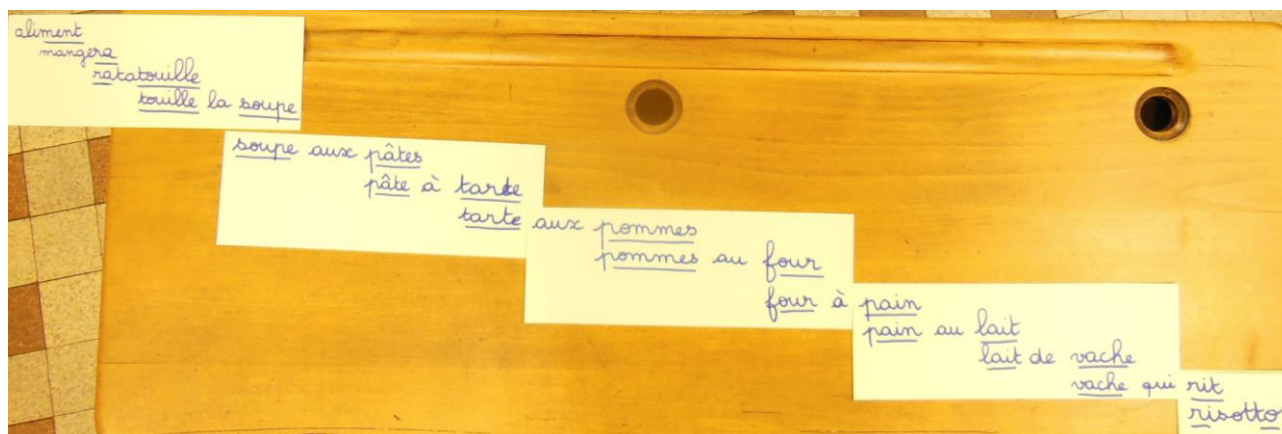 aliment
mangera
ratatouille
touille la soupe
soupe aux pâtes
pâte à tarte
tarte aux pommes
pommes au four
four à pain
pain au lait
lait de vache
vache qui rit
risotto